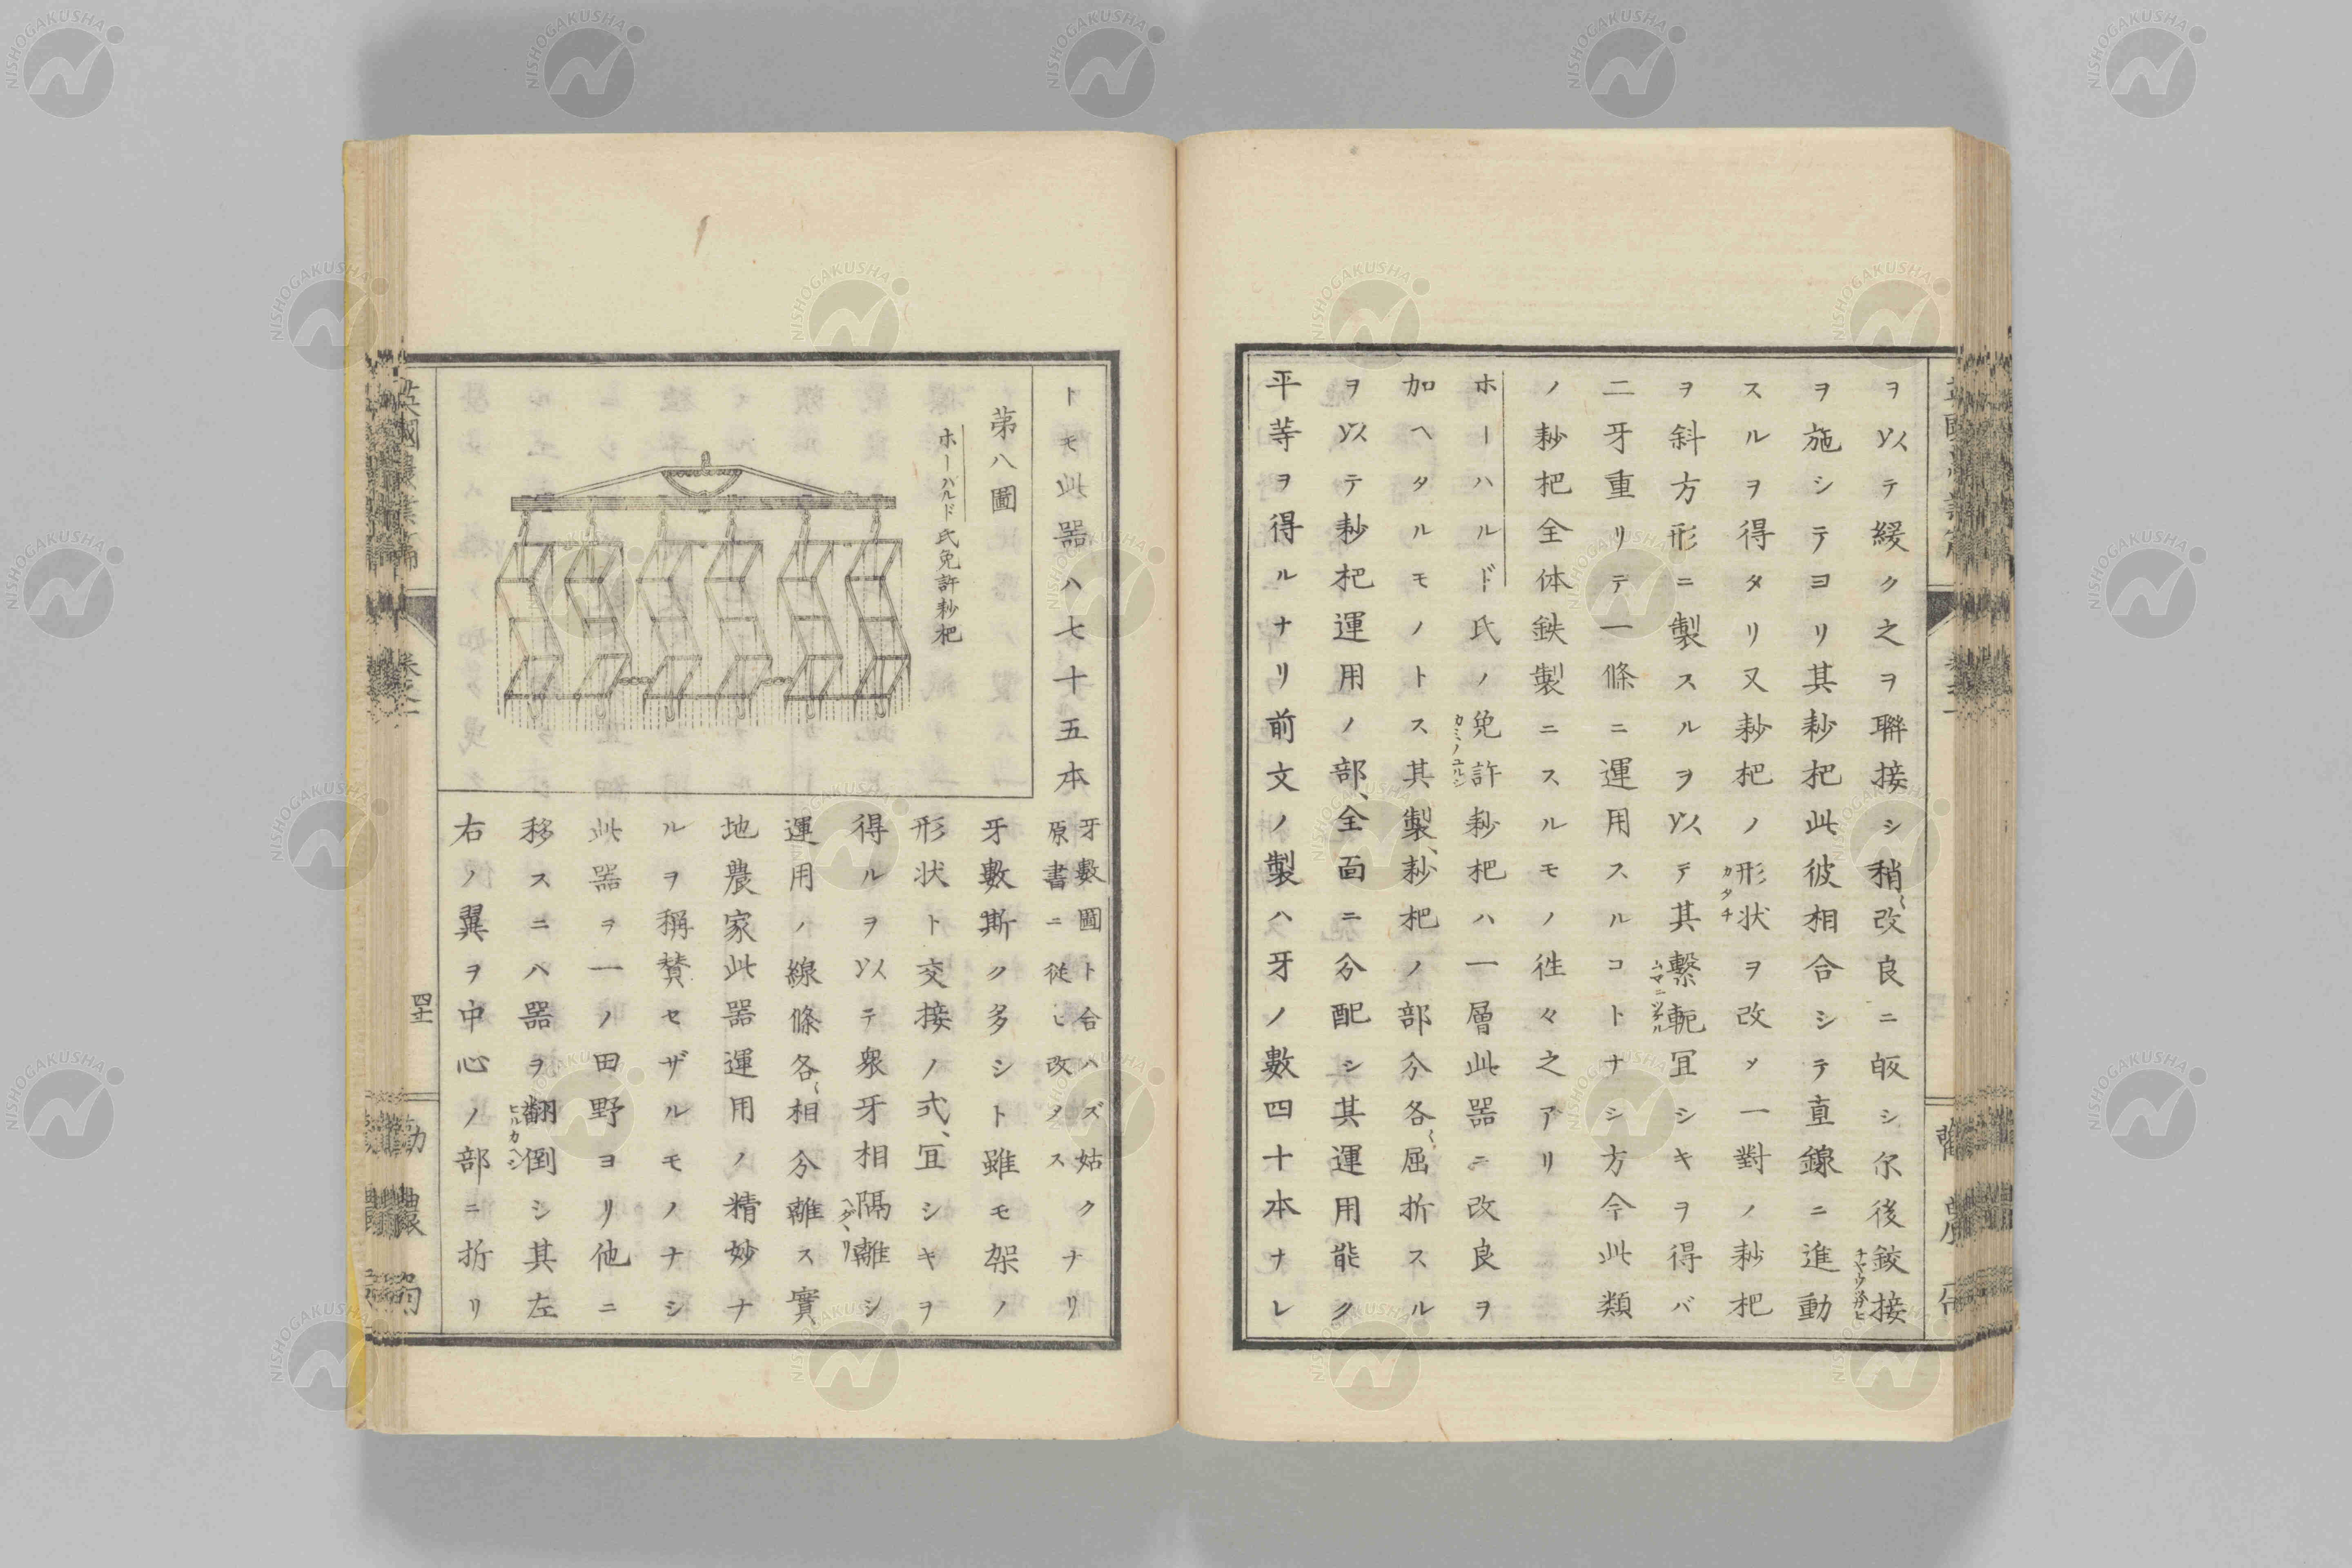 ヲ以テ緩ク之ヲ聯接シ稍〻改良ニ皈シ尓後鉸接
チヤウツガヒ
ヲ施シテヨリ其耖杷此彼相合シテ直線ニ進動
スルヲ得タリ又耖杷ノ形状ヲ改メ一對ノ耖杷
カタチ
ヲ斜方形ニ製スルヲ以テ其繫軛冝シキヲ得バ
ムマニツケル
二牙重リテ一條ニ運用スルコトナシ方今此類
ノ耖杷全体鉄製ニスルモノ徃々之アリ
ホーハルド氏ノ免許耖杷ハ一層此器ニ改良ヲ
カミノユルシ
加ヘタルモノトス其製、耖杷ノ部分各〻屈折スル
ヲ以テ耖杷運用ノ部、全面ニ分配シ其運用能ク
平等ヲ得ルナリ前文ノ製ハ牙ノ數四十本ナレ
トモ此器ハ七十五本
牙數圖ト合ハズ姑ク
原書ニ從ヒ改メス
ナリ
第八圖
ホーハルド氏免許耖杷
牙數斯ク多シト雖モ架ノ
形状ト交接ノ式、冝シキヲ
得ルヲ以テ衆牙相隔離シ
ヘダヽリ
運用ノ線條各〻相分離ス實
地農家此器運用ノ精妙ナ
ルヲ稱賛セザルモノナシ
此器ヲ一ノ田野ヨリ他ニ
移スニハ器ヲ翻倒シ其左
ヒルカヘシ
右ノ翼ヲ中心ノ部ニ折リ
英國農業篇
卷之一
四十一
勸農局
NISHOGAKUSHA